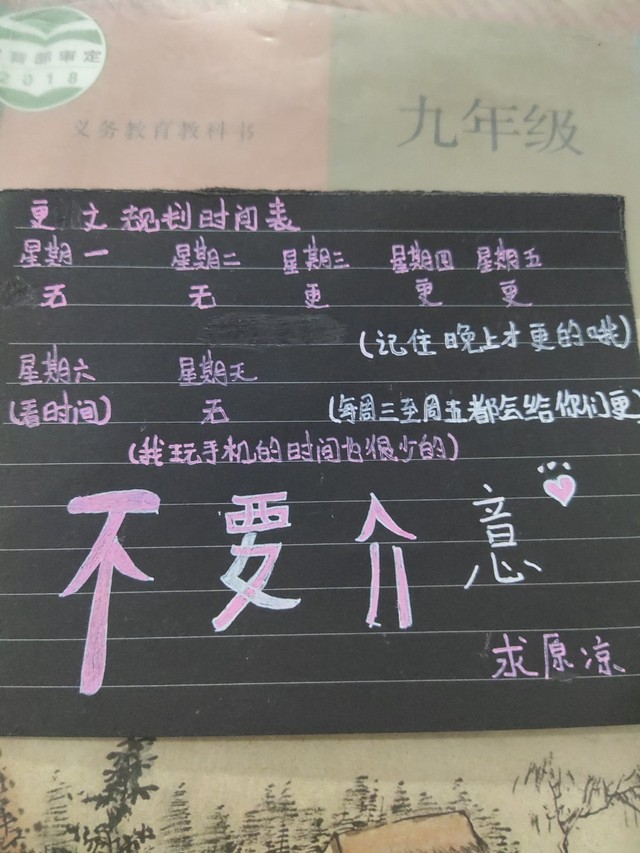 育部审定
2018
义务教育教科书
九年级
更文规划时间表
星期一 星期二 星期三 星期四 星期五
无 无 更 更 更
(记住晚上才更的哦)
星期六 星期天
(看时间) 无 (每周三至周五都会给你们更)
(我玩手机的时间为很少的)
不要介意
求原凉